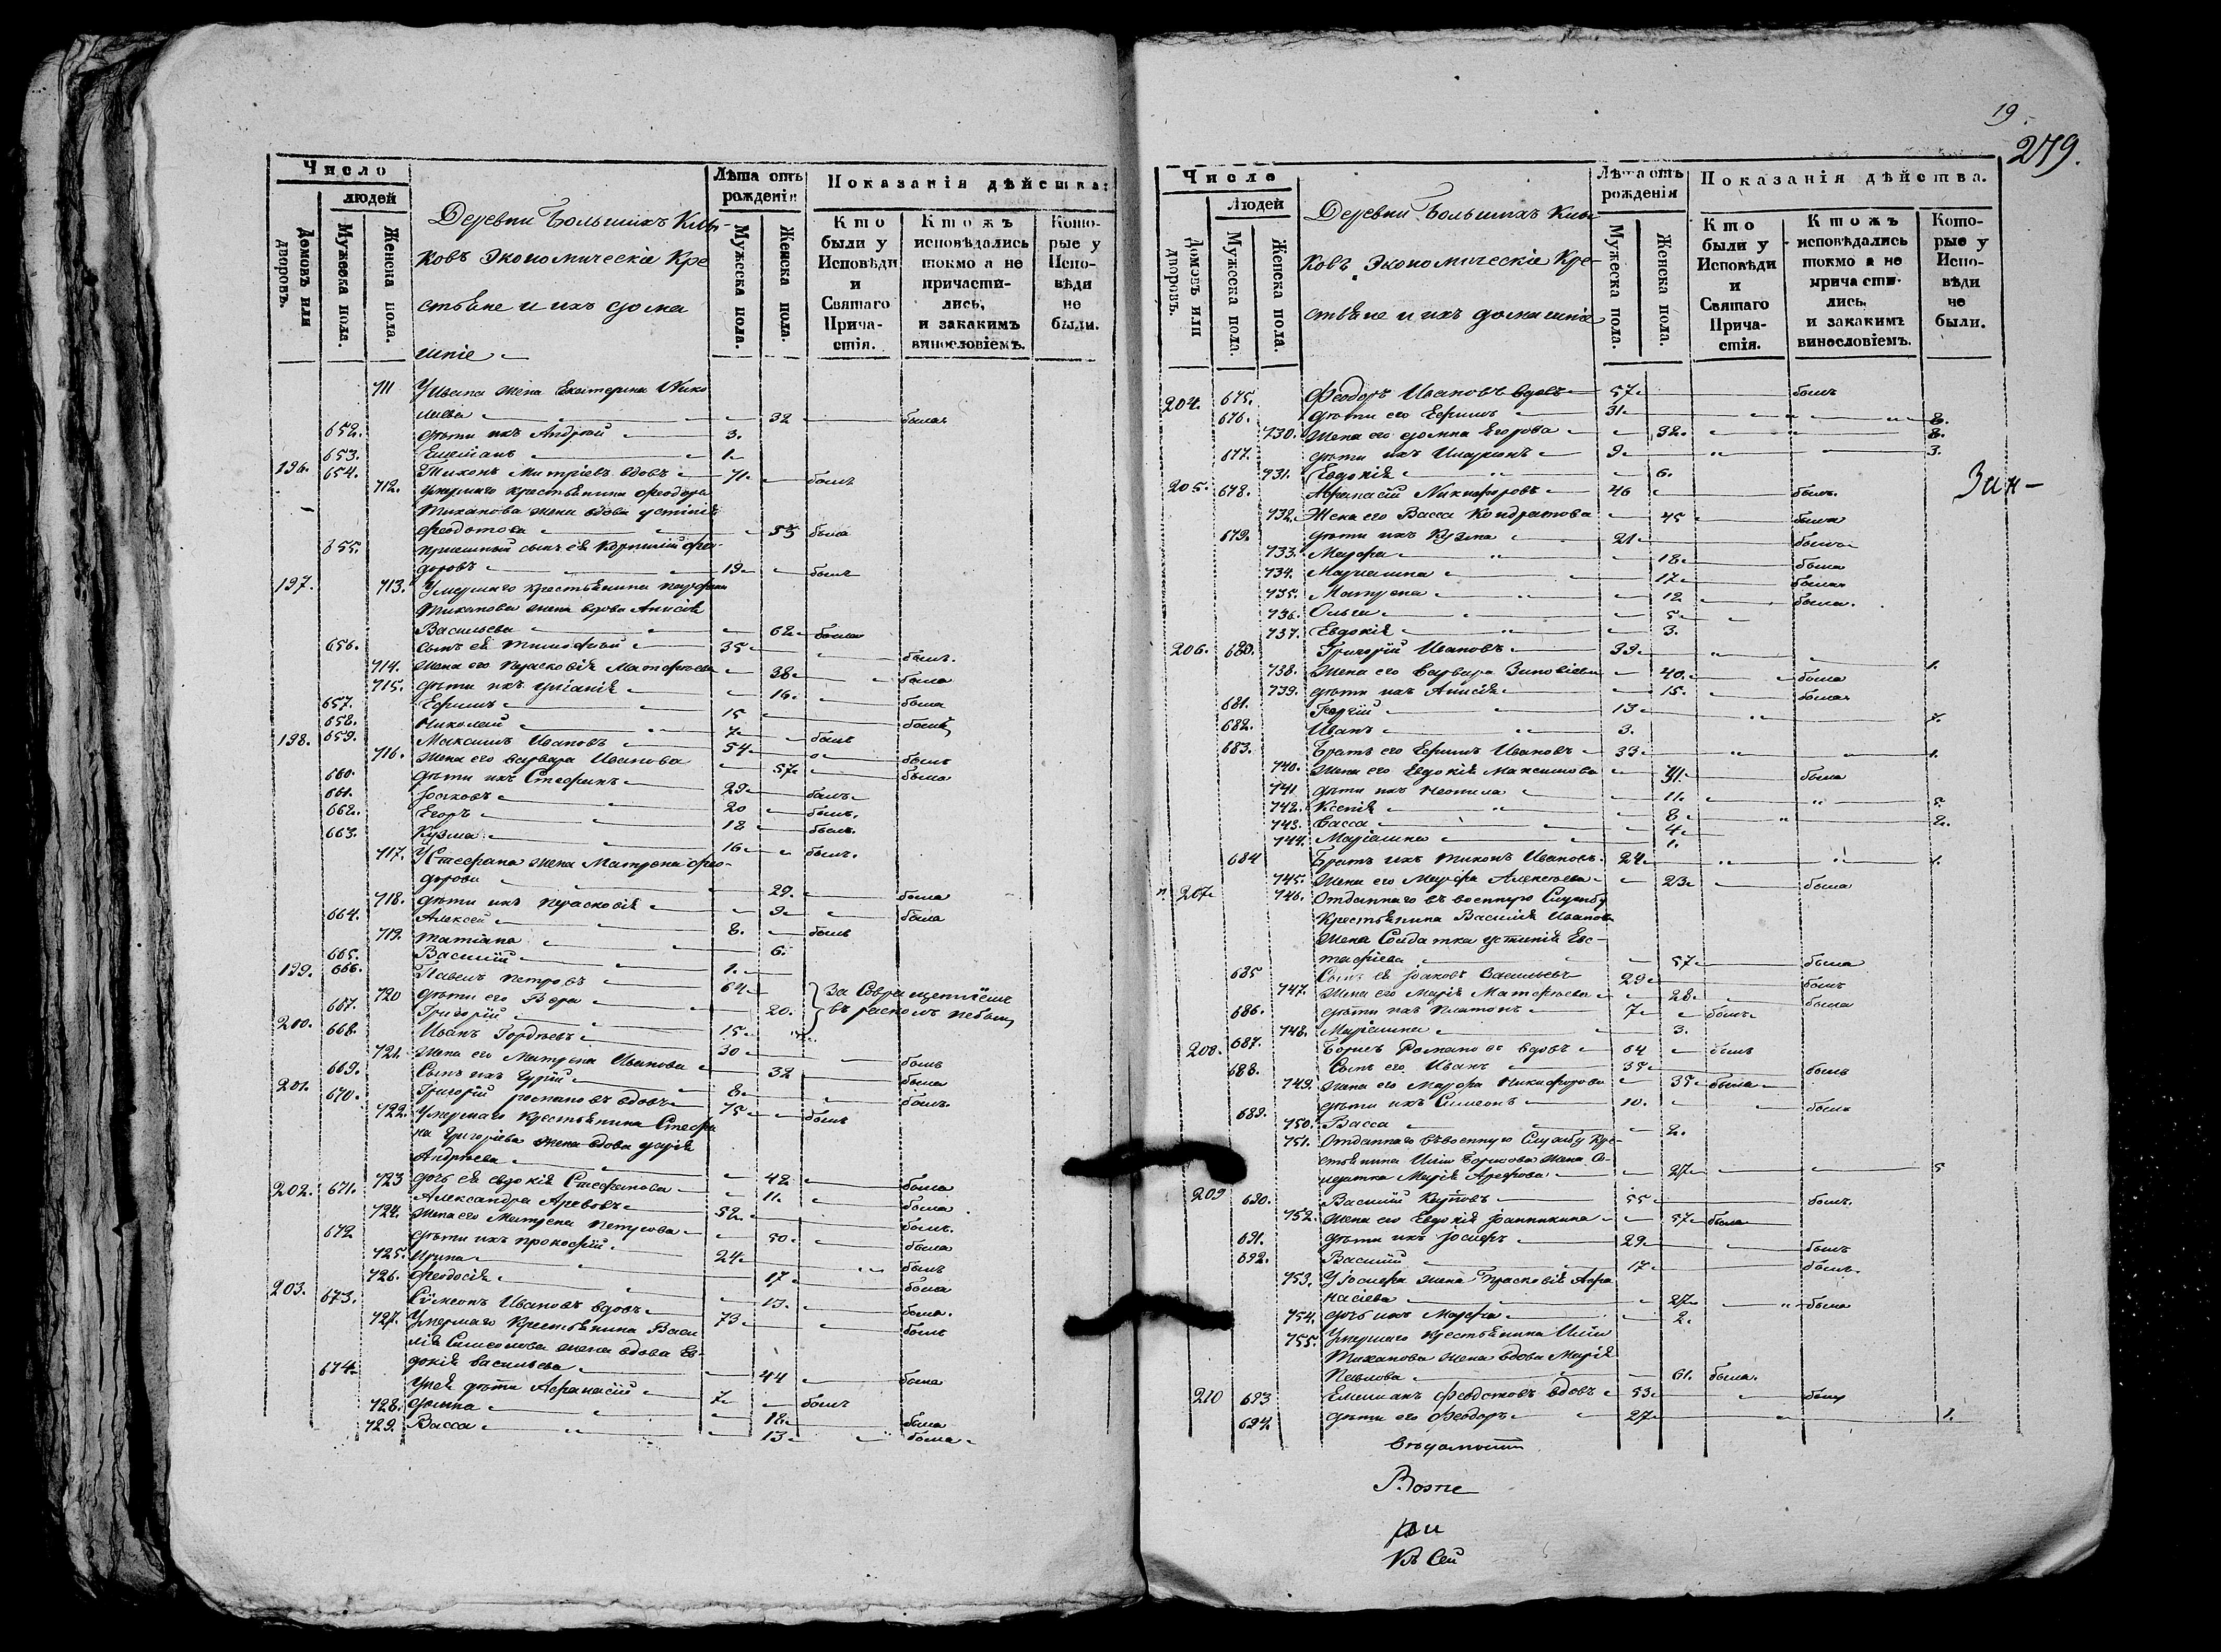 Число
людей
Домовъ или дворовъ.
Мужеска пола.
Женска пола.
Деревни Большихъ Клы-
ковъ Экономическіе Кре
стьяне и ихъ дома
шніе
Лѣта отъ рожденія
Мужеска пола.
Женска пола.
Показанія дѣйства:
Кто были у Исповѣди и Святаго Прича-стія.
Ктожъ исповѣдались токмо а не причасти-лись, и закакимъ винословіемъ.
Кото-рые у Испо-вѣди не были.
711 У Ивана жена Екатерина Нико
лаева 32 была
652. дѣти ихъ Андрей 3.
653. Емеліанъ 1
196. 654. Тихонъ Митріевъ вдовъ 71. былъ
712. Умершаго крестьянина Феодора
Тиханова жена вдова Устинія
Федотова 53 была
655. пріемный сынъ ея Корнилій Фео-
доровъ 19 былъ
197. 713. Умершаго крестьянина
Тиханова жена вдова Анисія
Васильева 62 была
656. сынъ ея Тимофей 35 былъ.
714. жена его Прасковія Матфеева 38 была
715. дѣти ихъ 16. была
657. Ефимъ 15 былъ
658. Николай 7 былъ
198. 659. Максимъ Ивановъ 54 былъ
716. жена его Варвара Иванова 57 была
660. дѣти ихъ Стефанъ 29 былъ
661. Іаковъ 20 былъ.
662. Егоръ 18 былъ.
663. Кузма 16 былъ.
717. У Стефана жена Матрена Фео-
дорова 29. была
718. дѣти ихъ Прасковія 9 была
664. Алексей 8. былъ
719. Татіана 6.
665. Василій 1.
199. 666. Павелъ Петровъ 64 За Совращеніемъ
720 дѣти его Вера 20. въ расколъ небыли
667. Григорій 15
200. 668. Иванъ Гордеевъ 30 былъ
721. жена его Матрена Иванова 32 была
669. Сынъ ихъ Гурій 8 былъ.
201. 670. Григорій Романовъ вдовъ 75 былъ
722. Умершаго Крестьянина Стефа
на Григоріева жена вдова Дарія
Андреева 42 была
723 дочь ея Евдокія Стефанова 11. была
202. 671. Александра Аревовъ 52 былъ.
724. жена его Матрена Петрова 50. была
672 дѣти ихъ Прокофій 24 былъ
725. Ирина 17 была
726. Феодосія 13. была.
203. 673. Сѵмеонъ Ивановъ вдовъ 73 былъ
727. Умершаго Крестьянина Васи
лія Симеонова жена вдова Ев-
докія Васильева 44 была
674 У нея дѣти Афанасій 7 былъ
728. Фекла 18 была
729. Васса 13 была
19.
279.
Число
Людей
Домовъ или дворовъ.
Мужеска пола.
Женска пола.
Деревни Большихъ Клы
ковъ Экономическіе Кре-
стьяне и ихъ домашніе
Лѣта отъ рожденія
Мужеска пола.
Женска пола.
Показанія дѣйства.
Кто были у Исповѣди и Святаго Прича-стія.
Ктожъ исповѣдались токмо а не причасти-лись, и закакимъ винословіемъ.
Кото-рые у Испо-вѣди не были.
204. 675. Феодоръ Ивановъ вдовъ 57 былъ
676. дѣти его Ефимъ 31 8.
730. жена его Домна Егорова 32. 8.
677. дѣти ихъ Иларіонъ 9 3.
731. Евдокія 6.
205. 678. Афанасій Никифоровъ 46 былъ.
Зин-
732. Жена его Васса Кондратова 45 была
679. дѣти ихъ Кузма 21 былъ
733. Марфа 18 была
734. Маріамна 17 была
735. Матрена 12 была.
736. Ольга 5
737. Евдокія 3.
206. 680. Григорій Ивановъ 39 1.
738. жена его Варвара Зиновіева 40. была
739. дѣти ихъ Анисія 15. была
681. Георгій 13 7.
682. Иванъ 3.
683. Братъ его Ефимъ Ивановъ 33 1.
740. жена его Евдокія Максимова 41. была
741 дѣти ихъ Неонила 11. 5.
742. Ксенія 8 2.
743. Васса 4
744. Маріамна 1.
684 Братъ ихъ Тихонъ Ивановъ. 24 1.
745. жена его Марфа Алексеева 23 была
207 746. Отданнаго въ военную Службу
Крестьянина Василія Иванова
жена Солдатка Устинія Евс-
тафіева 57 была
685 Сынъ ея Іаковъ Васильевъ 29 былъ
747. жена его Марія Матфеева 28 была
686. дѣти ихъ Платонъ 7 былъ
748. Маріамна 3.
208. 687. Борисъ Романовъ вдовъ 64 былъ
688. Сынъ его Иванъ 35 былъ
749. жена его Марфа Никифорова 35 была
689. дѣти ихъ Симеонъ 10. былъ
750. Васса 2.
751. Отданнаго въ военную Службу Кре-
стьянина Иліи Борисова жена Со-
лдатка Марія Арефова 27 5
209 690. Василій Карповъ 55 былъ.
752. жена его Евдокія Іоанникина 57 была
691. дѣти ихъ Іосифъ 29 былъ
692. Василій 17 былъ.
753. У Іосифа жена Прасковія Афа
насіева 27 была
754. дочь ихъ Марфа 2.
755. Умершаго крестьянина Иліи
Тиханова жена вдова Марія
Павлова 61. была.
210 693 Емеліанъ Федотовъ вдовъ 53 былъ
694. дѣти его Феодоръ 27 1.
Къ Сей